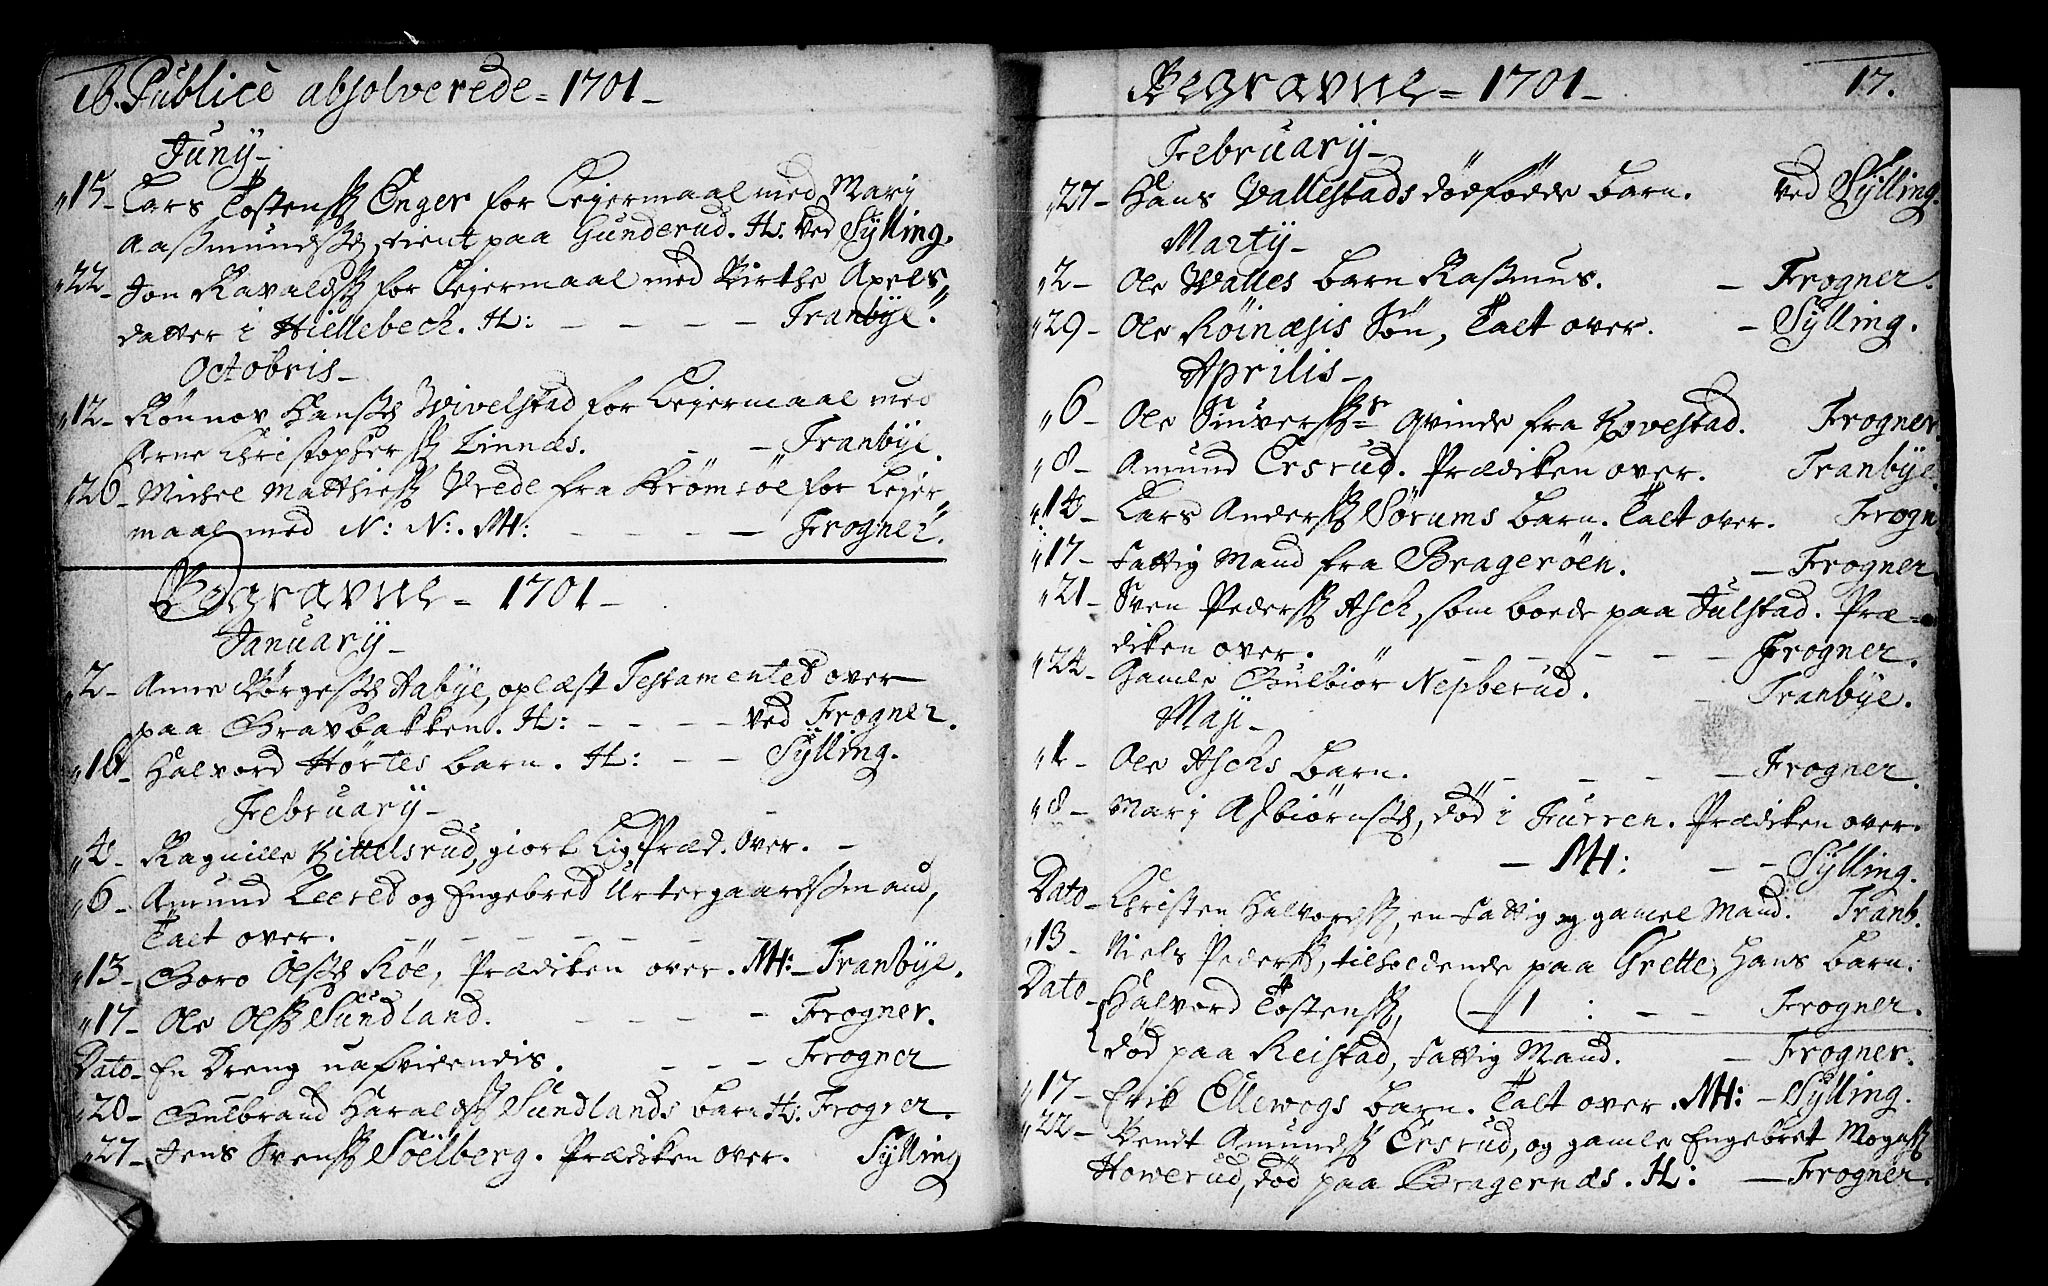 16. Publicè absolverede = 1701 –
Junÿ –
15 – Lars Tostensß Enger for Lejermaal med Marj
Aaßmundsß. tient paa Gunderud. H: ved Sÿlling.
22 – Jon Ravaldsß for Lejermaal med Birthe Axels„
datter i Hiellebech. H: – – – – Tranbÿe.
Octobris –
12 – Rönnov Hansd Wivelstad for Lejermaal med
Arne Christophersß Linnæs. – – Tranbÿe.
26 – Michel Matthiesß Vrede fra Strømsöe for Lejer„
maal med N: N: MH: – – – – Frogner.
Begravne = 1701 –
Januarÿ –
2 – Anne Börgesd Aabÿe, oplæst Testamented over
paa Gravbakken. H: – – – – ved Frogner.
16 – Halvord Hörtes barn. H: – – Sÿlling.
Februarÿ –
4 – Ragnille Kittelsrud, giort LigPræd. over. –
6 – Amund Leered og Engebred Urtegaardsmand,
Talt over. – – – – – –
13 – Goro Olsd Röe, Prædiken over. MH: – Tranbÿe.
17 – Ole Olsß Sundland. – – – – Frogner.
Dato – En Dreng uafvidendis. – – – Frogner
20 – Gulbrand Haraldsß Sundlands barn H: Frogner.
27 – Jens Svensß Söelberg. Prædiken over. Sÿlling
Begravne = 1701 –
17.
Februarÿ –
27 – Hans Vallestads dödfödde barn. ved Sÿlling.
Martÿ –
2 – Ole Walles barn Raßmus. – Frogner.
29 – Ole Röinæsis Sön, Talt over. – Sÿlling.
Aprilis –
6 – Ole Qvinde fra Kovestad. Frogner.
8 – Amund Eesrud. Prædiken over. Tranbÿe.
14 – Lars Andersß Sörums barn. Talt over. Frogn
17 – Fattig Mand fra Brageröen. – Frogner
21 – Sven Pedersß Asch, som boede paa Julstad. Præ–
diken over. – – – – – Frogner.
24 – Gamle Gulbiör Nepberud. – Tranbÿe.
Maji –
1 – Ole Aschs barn. – – – – Frogner
8 – Marj Asbiörnsd, död i Furren. Prædiken over.
– MH: – – Sÿlling.
Dato – Christen Halvordsß, en fattig og gamel Mand. Tranb.
13 – Niels Pedersß, tilholdende paa Grette, Hans barn.
Dato – Halvord Tostensß, – 1 : – – Frogner.
död paa Reistad, fattig Mand. – Frogner.
17 – Erik Ellewogs barn. Talt over. MH: – Sÿlling.
22 – Bendt Amundsß Eesrud, og gamle Engebret Mogsß
Howerud, död paa Bragernæs. H: – Frogner.